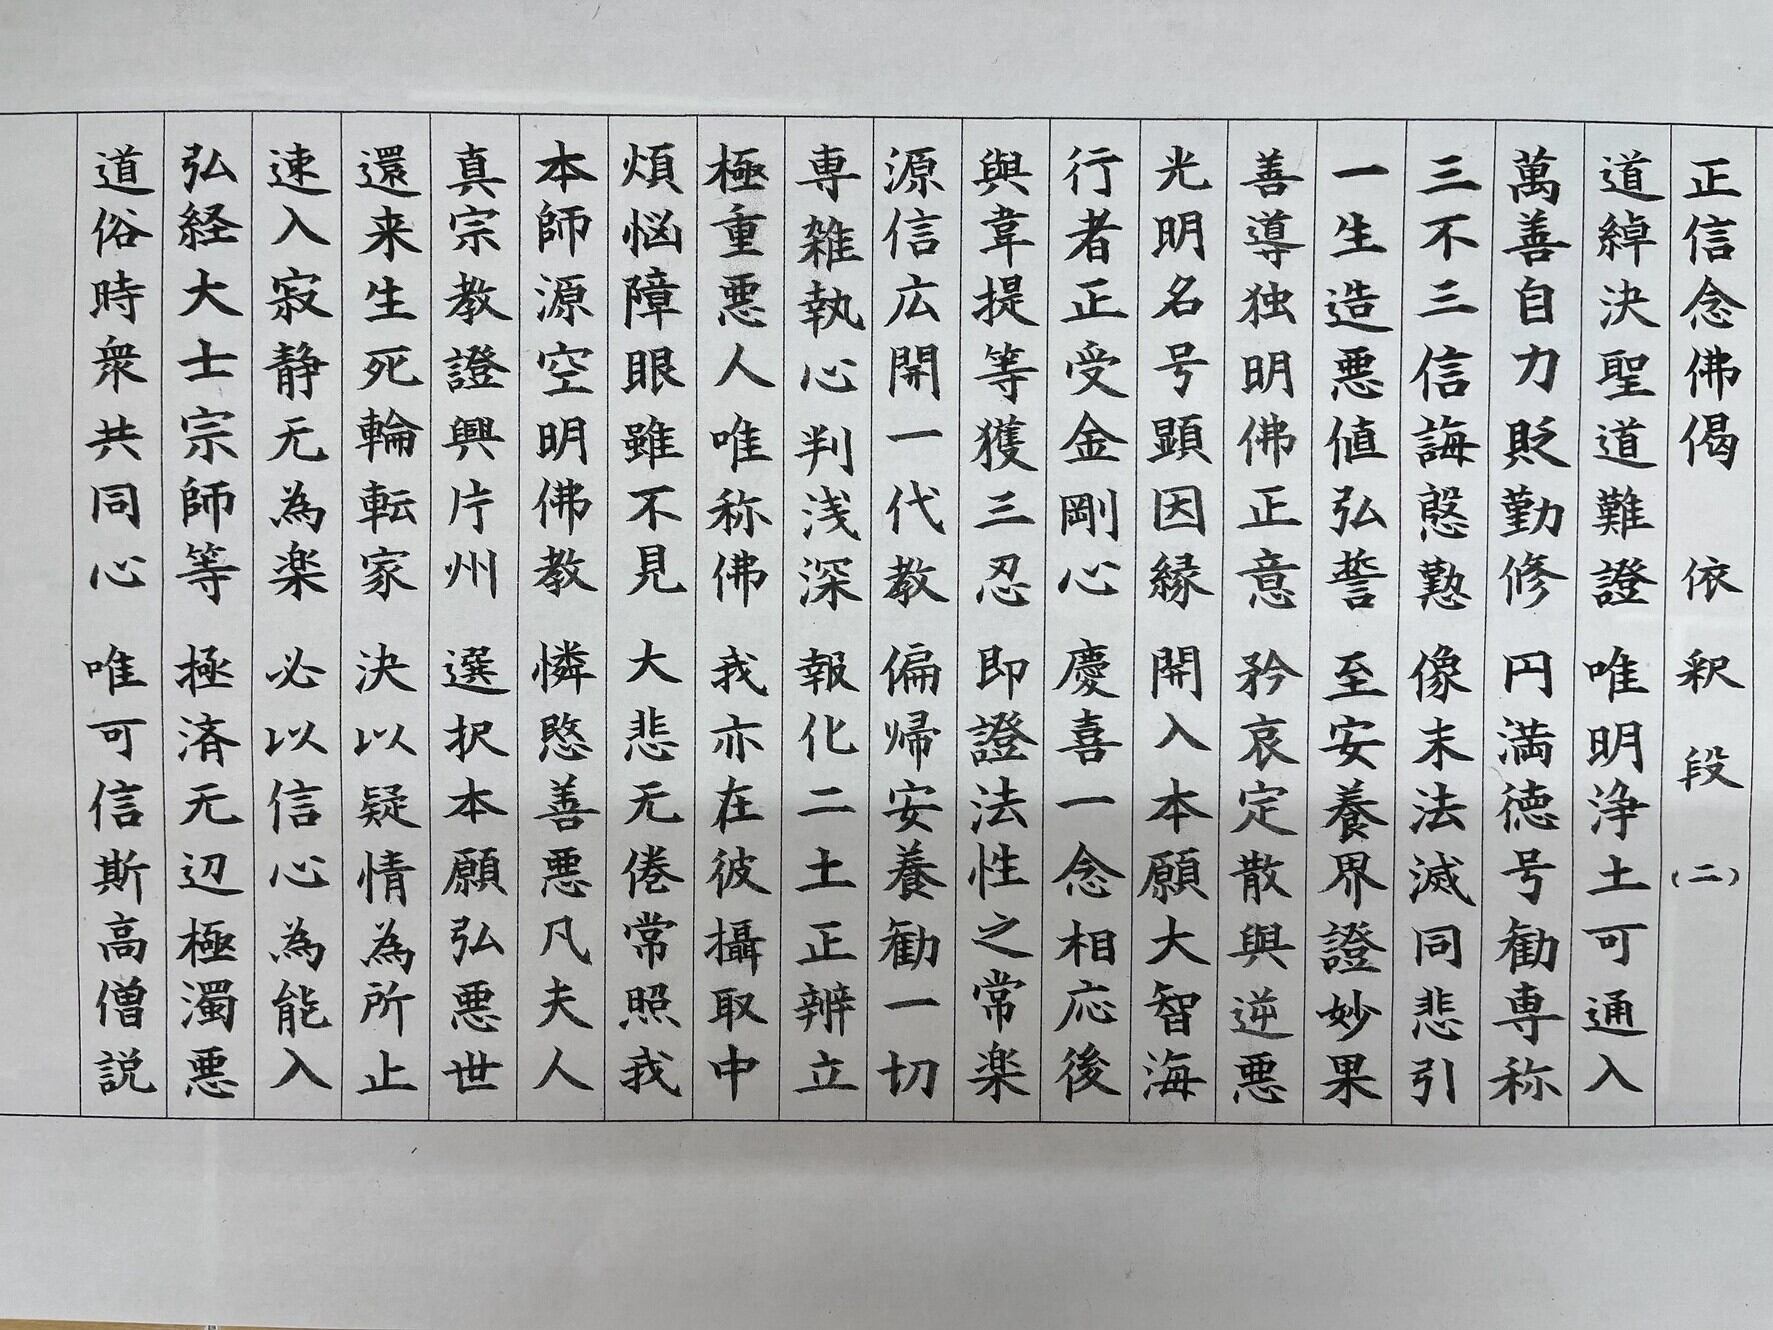 正信念佛偈 依釈段(二)
道綽決聖道難證 唯明浄土可通入
萬善自力貶勤修 円満徳号勧専称
三不三信誨慇懃 像末法滅同悲引
一生造悪値弘誓 至安養界證妙果
善導独明佛正意 矜哀定散與逆悪
光明名号顕因縁 開入本願大智海
行者正受金剛心 慶喜一念相応後
與韋提等獲三忍 即證法性之常楽
源信広開一代教 偏帰安養勧一切
専雑執心判浅深 報化二土正辨立
極重悪人唯称佛 我亦在彼攝取中
煩悩障眼雖不見 大悲无倦常照我
本師源空明佛教 憐愍善悪凡夫人
真宗教證興片州 選択本願弘悪世
還来生死輪転家 決以疑情為所止
速入寂静无為楽 必以信心為能入
弘経大士宗師等 極済无辺極濁悪
道俗時衆共同心 唯可信斯高僧説